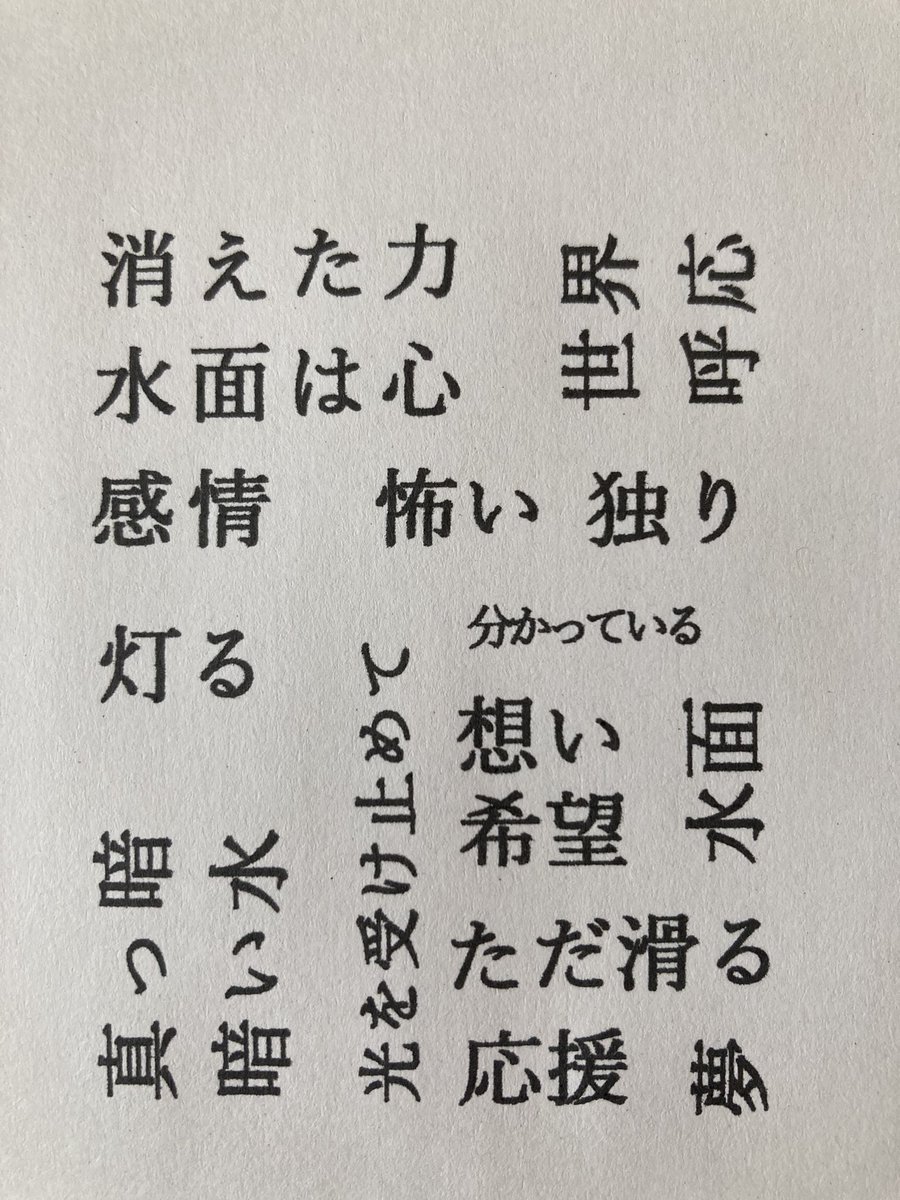 消えた力
世界
呼応
水面は心
感情
怖い
独り
灯る
分かっている
光を受け止めて
想い
水面
希望
真っ暗
暗い水
ただ滑る
応援
夢